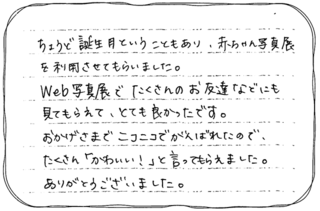 ちょうど誕生月ということもあり、赤ちゃん写真展
を利用させてもらいました。
Web写真展で たくさんのお友達などにも
見てもらえて、とても良かったです。
おかげさまでニコニコでがんばれたので、
たくさん「かわいい!」と言ってもらえました。
ありがとうございました。